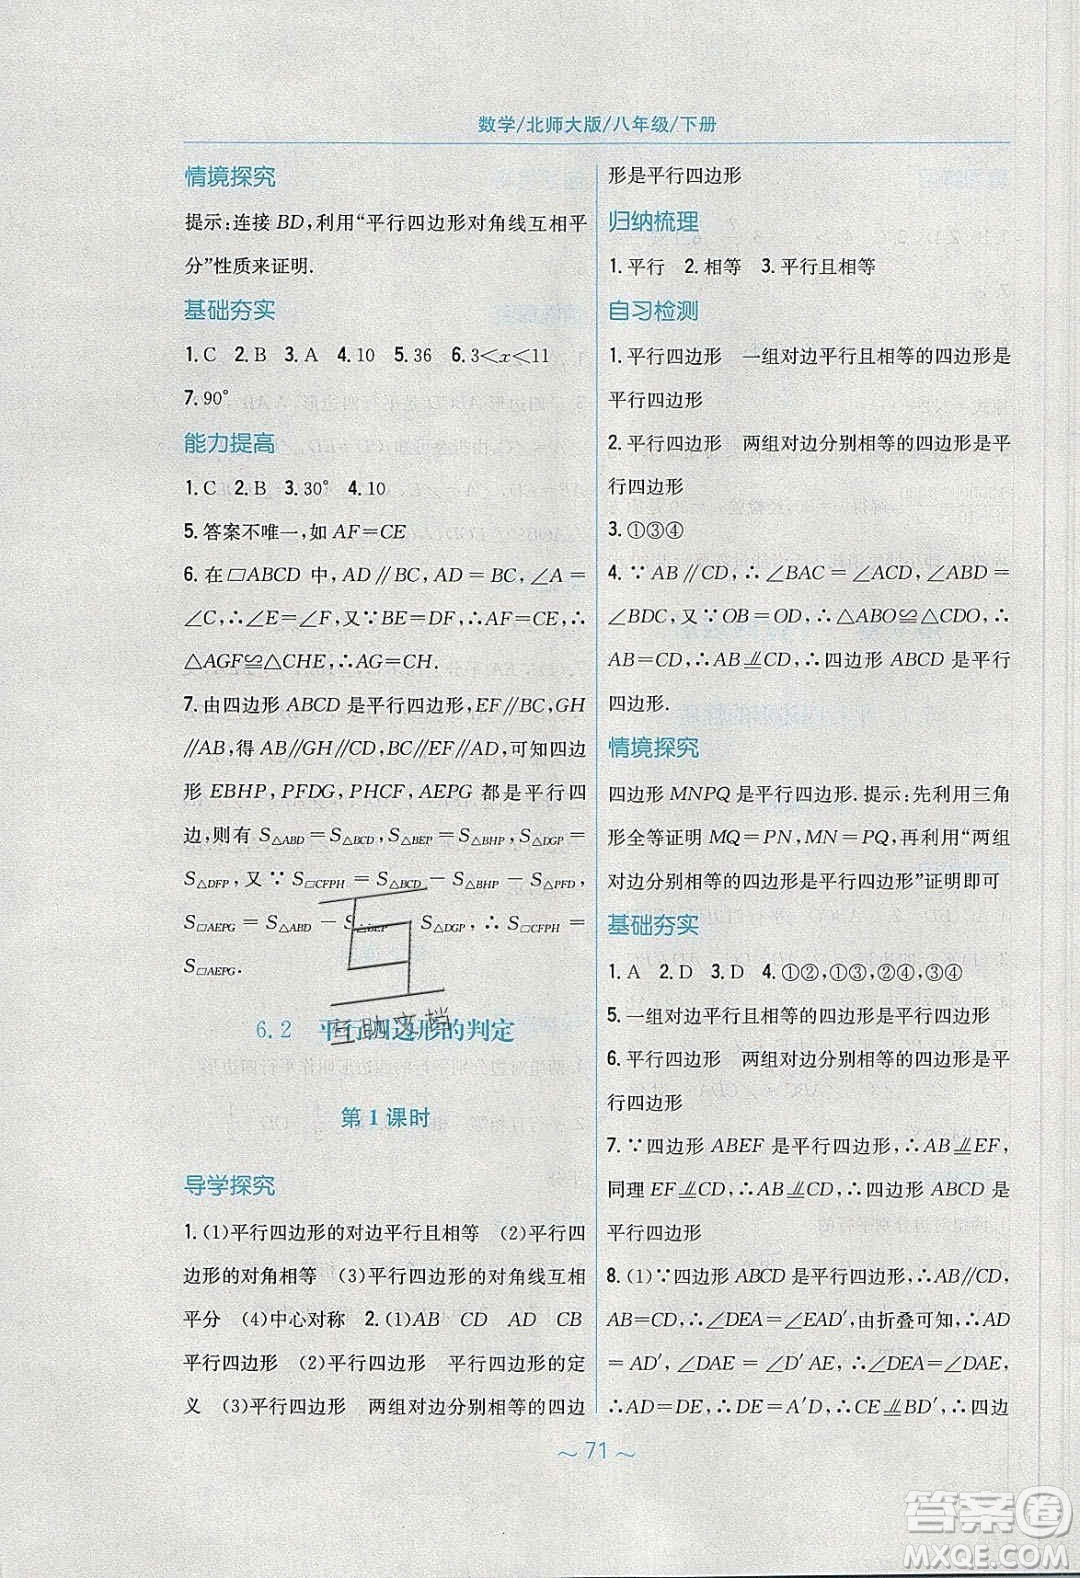 数学/北师大版/八年级/下册
情境探究
提示:连接BD,利用“平行四边形对角线互相平
分”性质来证明.
基础夯实
1.C 2.B 3.A 4.10 5.36 6.3<x<11
7.90°
能力提高
1.C 2.B 3.30° 4.10
5.答案不唯一,如 AF=CE
6.在▱ABCD 中,AD∥BC,AD=BC,∠A=
∠C,∴∠E=∠F,又∵BE=DF,∴AF=CE,∴
△AGF≌△CHE,∴AG=CH.
7.由四边形 ABCD 是平行四边形,EF∥BC,GH
∥AB,得 AB∥GH∥CD,BC∥EF∥AD,可知四边
形 EBHP,PFDG,PHCF,AEPG 都是平行四
边,则有 S△ABD=S△BCD,S△BEP=S△BHP,S△DGP=
S△DFP,又∵S▱CFPH=S△BCD-S△BHP-S△PFD,
S▱AEPG=S△ABD-S△BEP-S△DGP,∴S▱CFPH=
S▱AEPG.
6.2 平行四边形的判定
第1课时
导学探究
1.(1)平行四边形的对边平行且相等 (2)平行四
边形的对角相等 (3)平行四边形的对角线互相
平分 (4)中心对称 2.(1)AB CD AD CB
平行四边形 (2)平行四边形 平行四边形的定
义 (3)平行四边形 两组对边分别相等的四边
形是平行四边形
归纳梳理
1.平行 2.相等 3.平行且相等
自习检测
1.平行四边形 一组对边平行且相等的四边形是
平行四边形
2.平行四边形 两组对边分别相等的四边形是平
行四边形
3.①③④
4.∵AB∥CD,∴∠BAC=∠ACD,∠ABD=
∠BDC,又∵OB=OD,∴△ABO≌△CDO,∴
AB=CD,∴AB⫫CD,∴四边形 ABCD 是平行
四边形.
情境探究
四边形 MNPQ 是平行四边形.提示:先利用三角
形全等证明 MQ=PN,MN=PQ,再利用“两组
对边分别相等的四边形是平行四边形”证明即可
基础夯实
1.A 2.D 3.D 4.①②,①③,②④,③④
5.一组对边平行且相等的四边形是平行四边形
6.平行四边形 两组对边分别相等的四边形是平
行四边形
7.∵四边形 ABEF 是平行四边形,∴AB⫫EF,
同理 EF⫫CD,∴AB⫫CD,∴四边形 ABCD 是
平行四边形
8.(1)∵四边形 ABCD 是平行四边形,∴AB∥CD,
AB=CD,∴∠DEA=∠EAD′,由折叠可知,∴AD
=AD′,∠DAE=∠D′AE,∴∠DEA=∠DAE,
∴AD=DE,∴DE=A′D,∴CE⫫BD′,∴四边
～71～
互助文档
答案圈
MXQE.COM